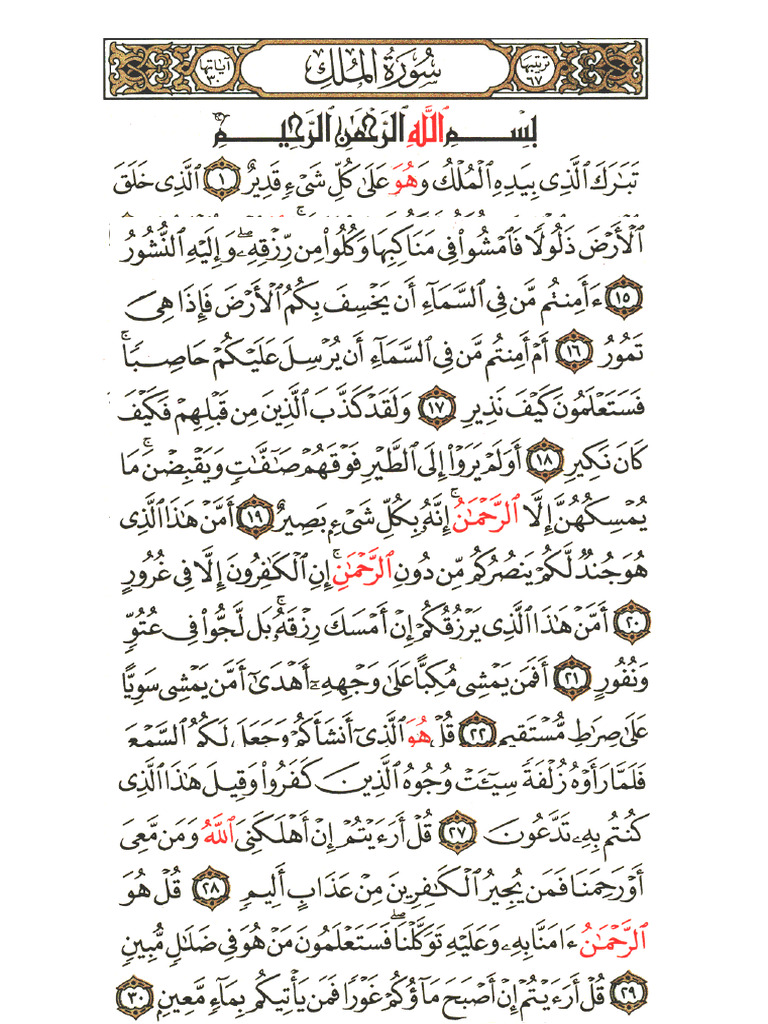 ترتيبها ٦٧ سُورَةُ المُلكِ آياتها ٣٠
بِسْمِ ٱللَّهِ ٱلرَّحْمَٰنِ ٱلرَّحِيمِ
تَبَٰرَكَ ٱلَّذِى بِيَدِهِ ٱلْمُلْكُ وَهُوَ عَلَىٰ كُلِّ شَىْءٍ قَدِيرٌ ١ ٱلَّذِى خَلَقَ
ٱلْأَرْضَ ذَلُولًا فَٱمْشُوا۟ فِى مَنَاكِبِهَا وَكُلُوا۟ مِن رِّزْقِهِۦ ۖ وَإِلَيْهِ ٱلنُّشُورُ
١٥ ءَأَمِنتُم مَّن فِى ٱلسَّمَآءِ أَن يَخْسِفَ بِكُمُ ٱلْأَرْضَ فَإِذَا هِىَ
تَمُورُ ١٦ أَمْ أَمِنتُم مَّن فِى ٱلسَّمَآءِ أَن يُرْسِلَ عَلَيْكُمْ حَاصِبًا ۖ
فَسَتَعْلَمُونَ كَيْفَ نَذِيرِ ١٧ وَلَقَدْ كَذَّبَ ٱلَّذِينَ مِن قَبْلِهِمْ فَكَيْفَ
كَانَ نَكِيرِ ١٨ أَوَلَمْ يَرَوْا۟ إِلَى ٱلطَّيْرِ فَوْقَهُمْ صَٰٓفَّٰتٍ وَيَقْبِضْنَ ۚ مَا
يُمْسِكُهُنَّ إِلَّا ٱلرَّحْمَٰنُ ۚ إِنَّهُۥ بِكُلِّ شَىْءٍۭ بَصِيرٌ ١٩ أَمَّنْ هَٰذَا ٱلَّذِى
هُوَ جُندٌ لَّكُمْ يَنصُرُكُم مِّن دُونِ ٱلرَّحْمَٰنِ ۚ إِنِ ٱلْكَٰفِرُونَ إِلَّا فِى غُرُورٍ
٢٠ أَمَّنْ هَٰذَا ٱلَّذِى يَرْزُقُكُمْ إِنْ أَمْسَكَ رِزْقَهُۥ ۚ بَل لَّجُّوا۟ فِى عُتُوٍّ
وَنُفُورٍ ٢١ أَفَمَن يَمْشِى مُكِبًّا عَلَىٰ وَجْهِهِۦٓ أَهْدَىٰٓ أَمَّن يَمْشِى سَوِيًّا
عَلَىٰ صِرَٰطٍ مُّسْتَقِيمٍ ٢٢ قُلْ هُوَ ٱلَّذِىٓ أَنشَأَكُمْ وَجَعَلَ لَكُمُ ٱلسَّمْعَ
فَلَمَّا رَأَوْهُ زُلْفَةً سِيٓـَٔتْ وُجُوهُ ٱلَّذِينَ كَفَرُوا۟ وَقِيلَ هَٰذَا ٱلَّذِى
كُنتُم بِهِۦ تَدَّعُونَ ٢٧ قُلْ أَرَءَيْتُمْ إِنْ أَهْلَكَنِىَ ٱللَّهُ وَمَن مَّعِىَ
أَوْ رَحِمَنَا فَمَن يُجِيرُ ٱلْكَٰفِرِينَ مِنْ عَذَابٍ أَلِيمٍ ٢٨ قُلْ هُوَ
ٱلرَّحْمَٰنُ ءَامَنَّا بِهِۦ وَعَلَيْهِ تَوَكَّلْنَا ۖ فَسَتَعْلَمُونَ مَنْ هُوَ فِى ضَلَٰلٍ مُّبِينٍ
٢٩ قُلْ أَرَءَيْتُمْ إِنْ أَصْبَحَ مَآؤُكُمْ غَوْرًا فَمَن يَأْتِيكُم بِمَآءٍ مَّعِينٍۭ ٣٠